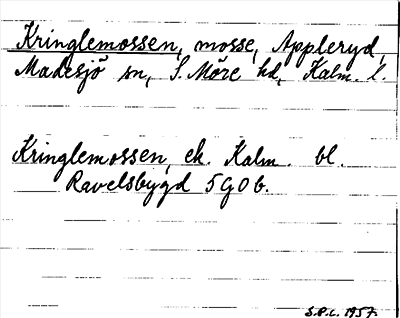 Kringlemossen, mosse, Appleryd,
Madesjö sn, S. Möre hd, Kalm. l.
Kringlemossen, ek. Kalm. bl.
Ravelsbygd 5G0b.
S.P.L. 1957